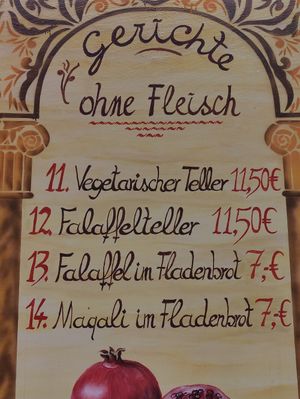 Gerichte
ohne Fleisch
11. Vegetarischer Teller 11,50€
12. Falaffelteller 11,50€
13. Falaffel im Fladenbrot 7,-€
14. Maqali im Fladenbrot 7,-€